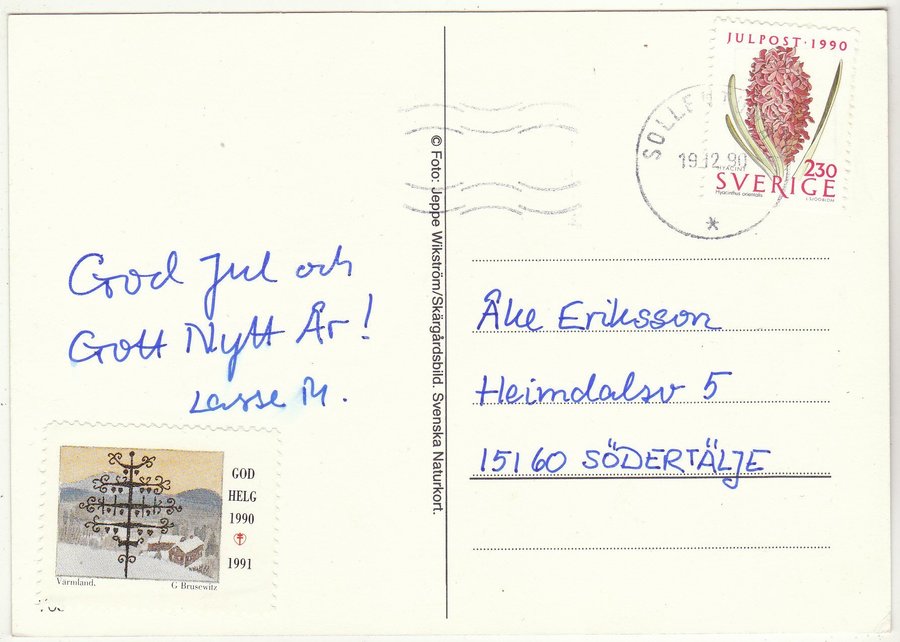 God Jul och
Gott Nytt År!
Lasse M.
GOD
HELG
1990
1991
Värmland.
G Brusewitz
© Foto: Jeppe Wikström/Skärgårdsbild. Svenska Naturkort.
JULPOST·1990
19.12.90
HYACINT
230
SVERIGE
Hyacinthus orientalis
I SJÖÖBLOM
Åke Eriksson
Heimdalsv 5
15160 SÖDERTÄLJE